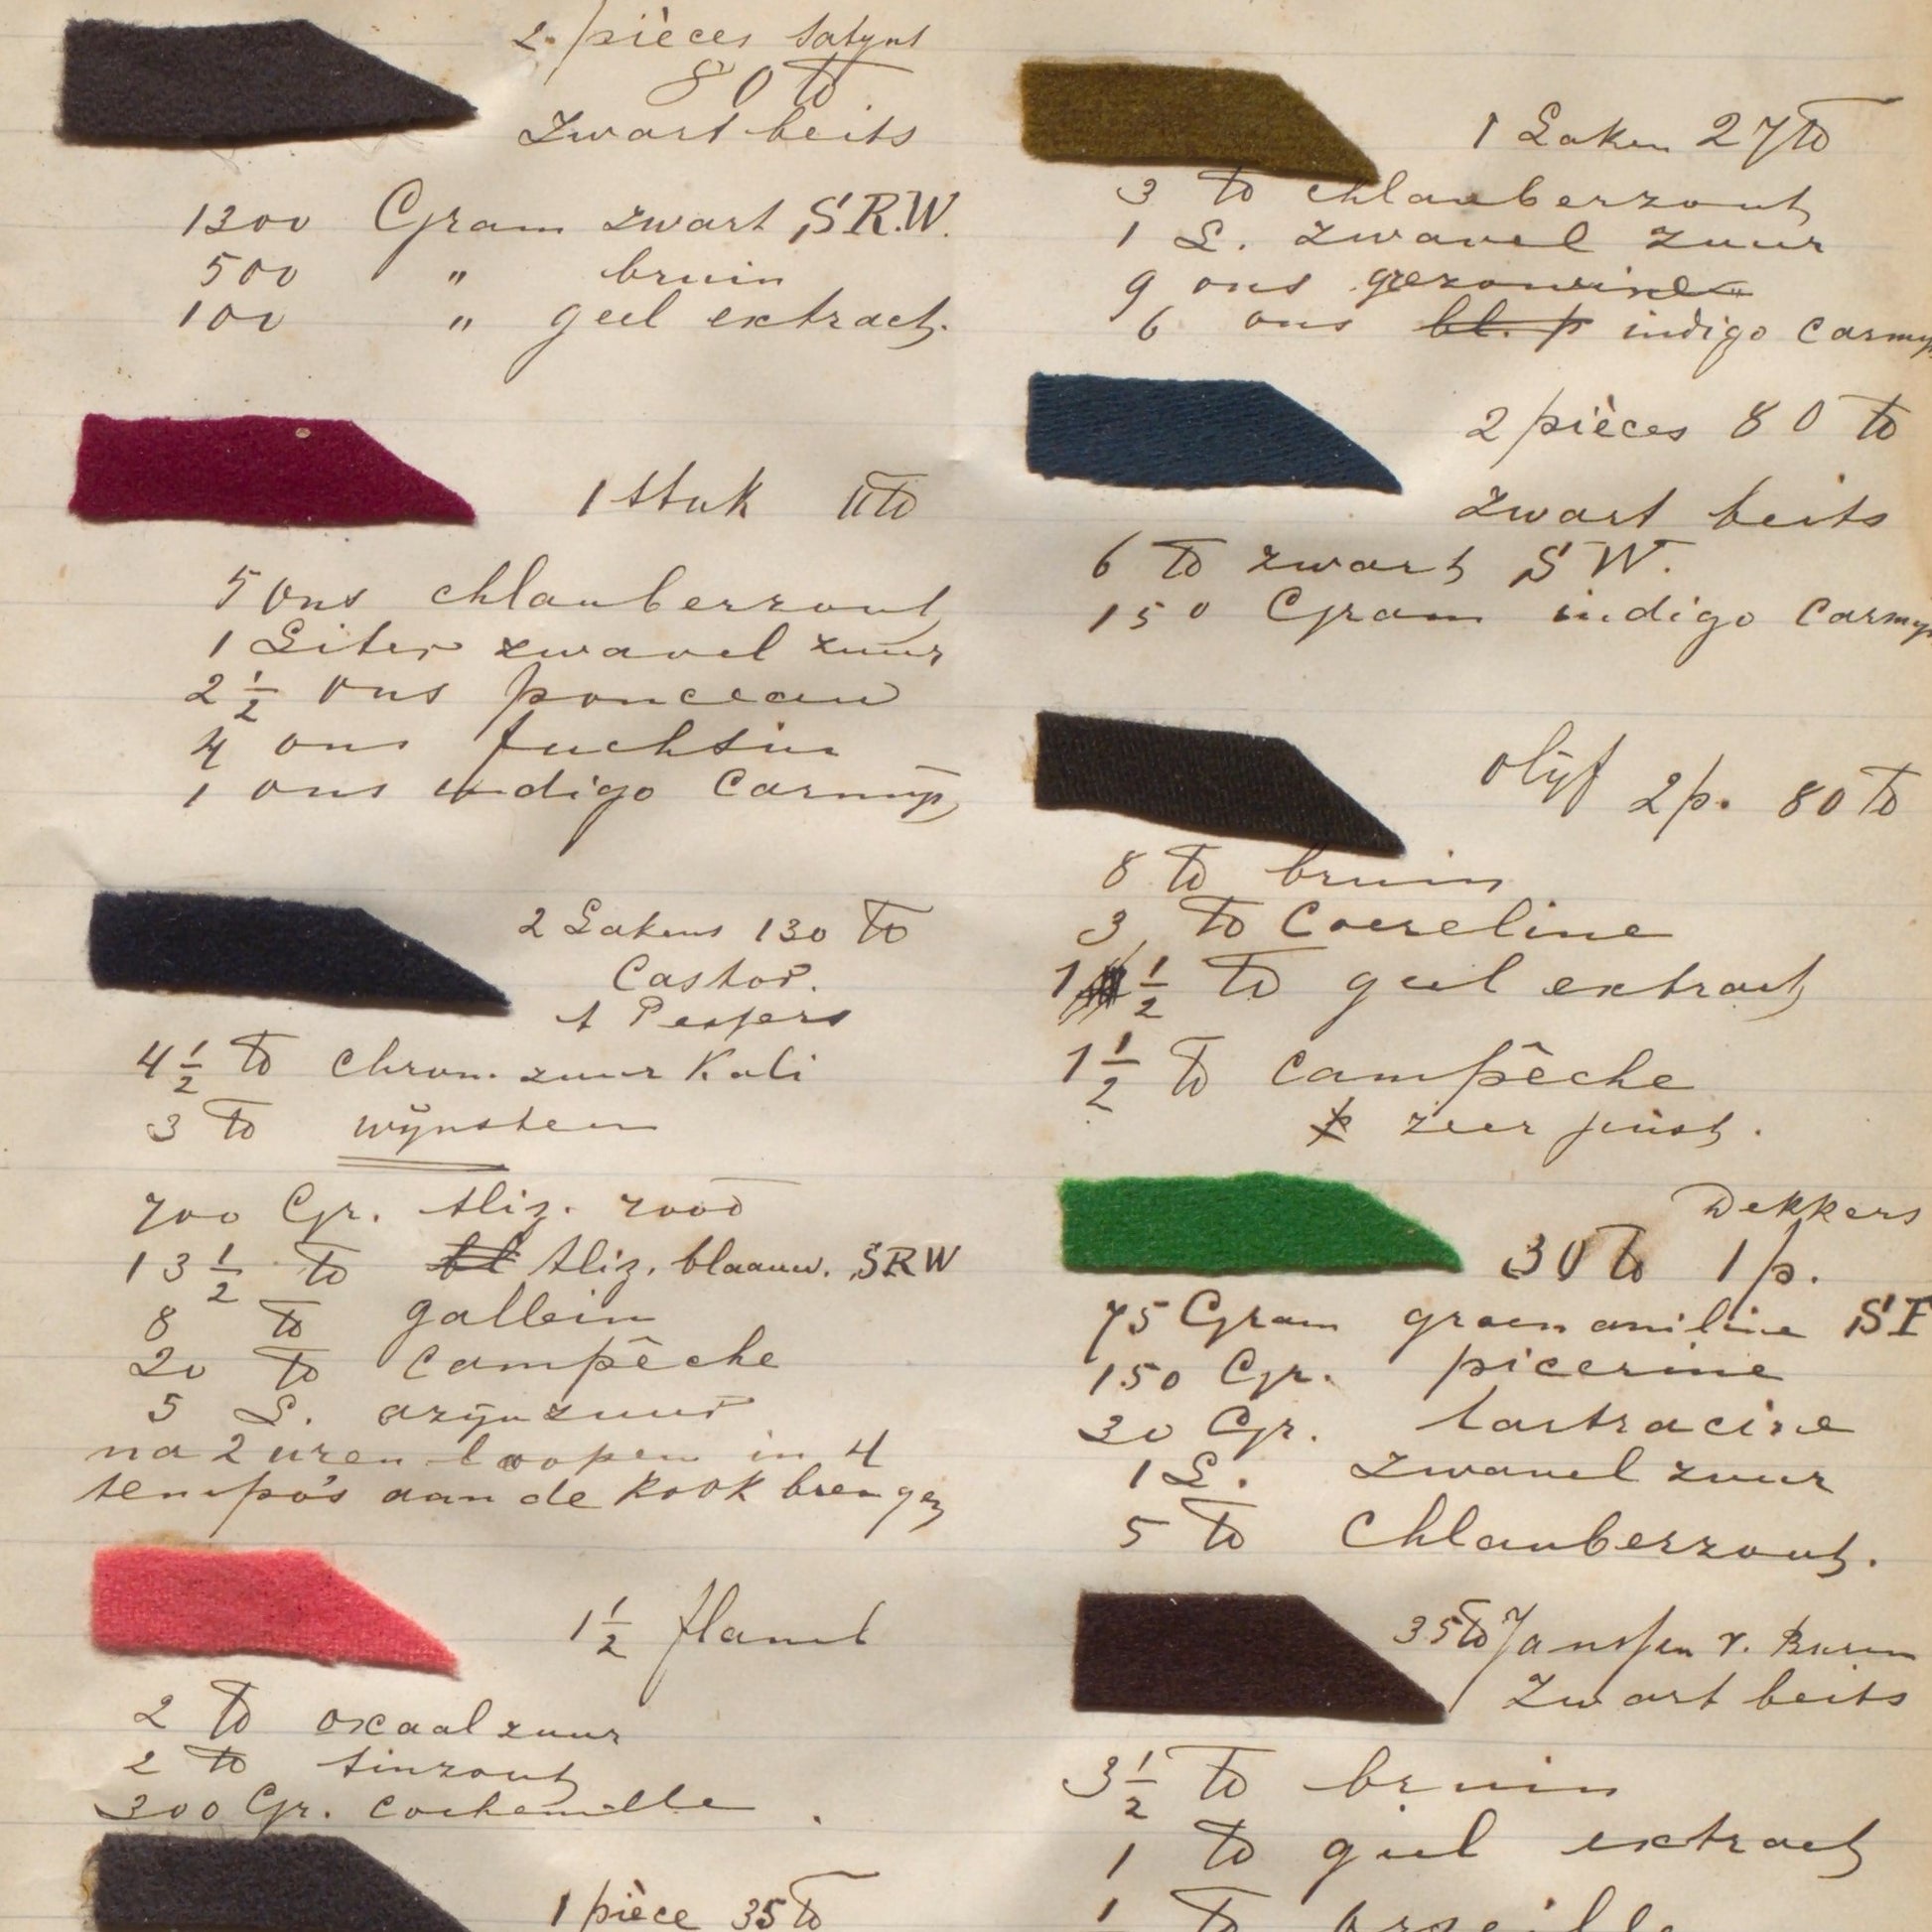 2 pièces satynt
80 ℔
Zwart beits
1300 Gram zwart S.R.W.
500 " bruin
100 " geel extract.
1 stuk 11 ℔
5 ons chlauberzout
1 Liter zwavel zuur
2 1/2 ons ponceau
4 ons fuchsin
1 ons indigo Carmyn
2 Lakens 130 ℔
Castor.
4 1/2 ℔ Chrom. zuur Kali
3 ℔ wynsteen
700 Gr. Aliz. rood
13 1/2 ℔ Aliz. blaauw. SRW
8 ℔ gallein
20 ℔ Campêche
5 L. azynzuur
na 2 uren loopen in 4
tempo's aan de kook brengen
1 1/2 flanel
2 ℔ oxaalzuur
2 ℔ tinzout
300 Gr. Cochenille.
1 pièce 35 ℔
1 Laken 27 ℔
3 ℔ chlauberzout
1 L. zwavel zuur
9 ons
6 ons bl. p indigo Carmyn
2 pièces 80 ℔
zwart beits
6 ℔ zwart S W.
150 Gram indigo Carmyn
olyf 2 p. 80 ℔
8 ℔ bruin
3 ℔ Coereline
1 1/2 ℔ geel extract
1 1/2 ℔ Campêche
zeer juist.
Dekkers
30 ℔ 1 p.
75 Gram groen aniline
150 Gr. picerine
30 Gr. tartracine
1 L. zwavel zuur
5 ℔ Chlauberzout.
35 ℔ Janssen v. Buren
Zwart beits
3 1/2 ℔ bruin
1 ℔ geel extract
1 ℔ orseille